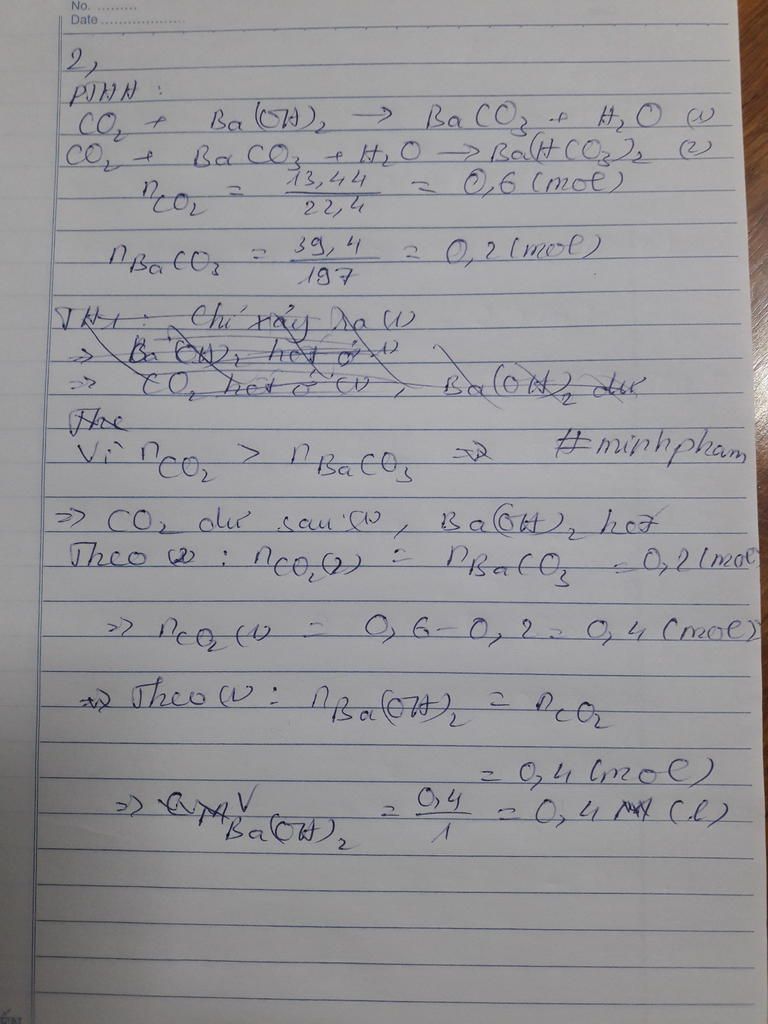 No. .........
Date ...................
2,
PTHH :
CO₂ + Ba(OH)₂ → BaCO₃ + H₂O (1)
CO₂ + BaCO₃ + H₂O → Ba(HCO₃)₂ (2)
nCO₂ = 13,44/22,4 = 0,6 (mol)
nBaCO₃ = 39,4/197 = 0,2 (mol)
TH1 : Chỉ xảy ra (1)
⇒ Ba(OH)₂ hết ở (1)
⇒ CO₂ hết ở (1), Ba(OH)₂ dư
Vì nCO₂ > nBaCO₃ ⇒ #minhpham
⇒ CO₂ dư sau (1), Ba(OH)₂ hết
Theo (2) : nCO₂(2) = nBaCO₃ = 0,2 (mol)
⇒ nCO₂(1) = 0,6 - 0,2 = 0,4 (mol)
⇒ Theo (1) : nBa(OH)₂ = nCO₂
= 0,4 (mol)
⇒ V Ba(OH)₂ = 0,4/1 = 0,4 (l)